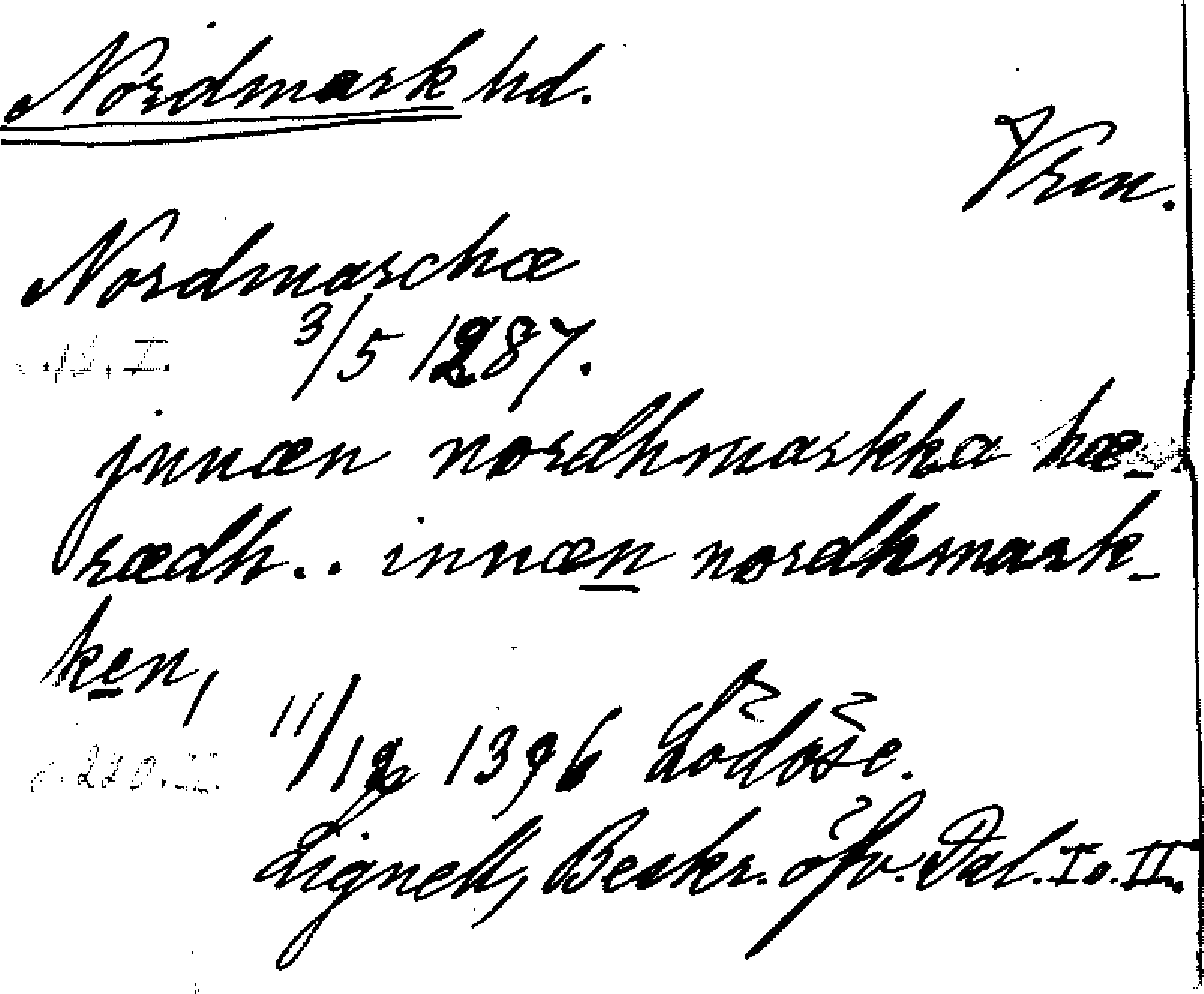 Nordmark hd.
Vrm.
Nordmarchæ
3/5 1287.
jnnæn nordhmarkka hæ-
rædh.. innæn nordhmark-
ken,
s. 220. II. 11/12 1396 Lödöse.
Lignell, Beskr. öfv. Dal. I o. II.